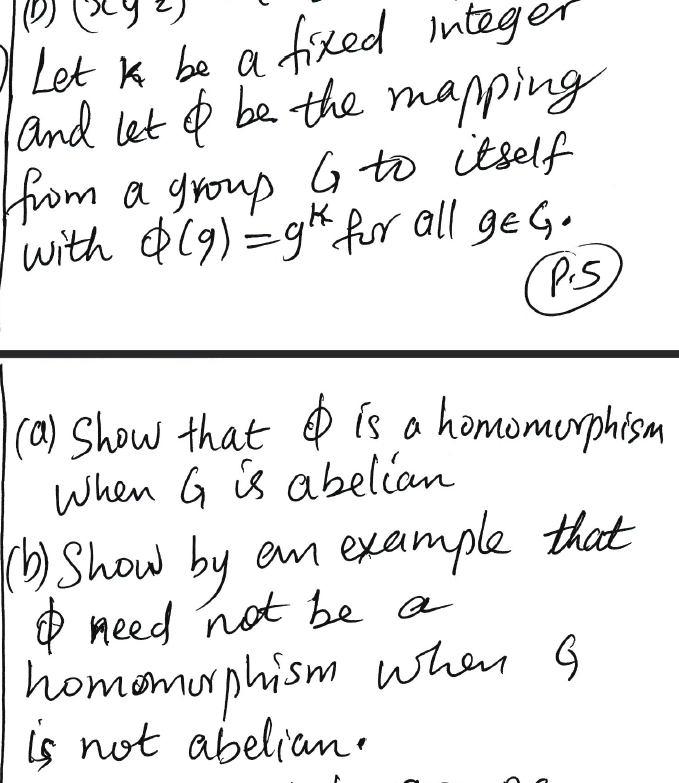 (b) (x y z)
Let k be a fixed integer
and let ϕ be the mapping
from a group G to itself
with ϕ(g) = g^k for all g∈G.
P.5
(a) Show that ϕ is a homomorphism
when G is abelian
(b) Show by an example that
ϕ need not be a
homomorphism when G
is not abelian.